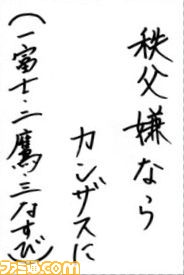 秩父嫌なら
カンザスに
(一富士・二鷹・三なすび)
ファミ通.com